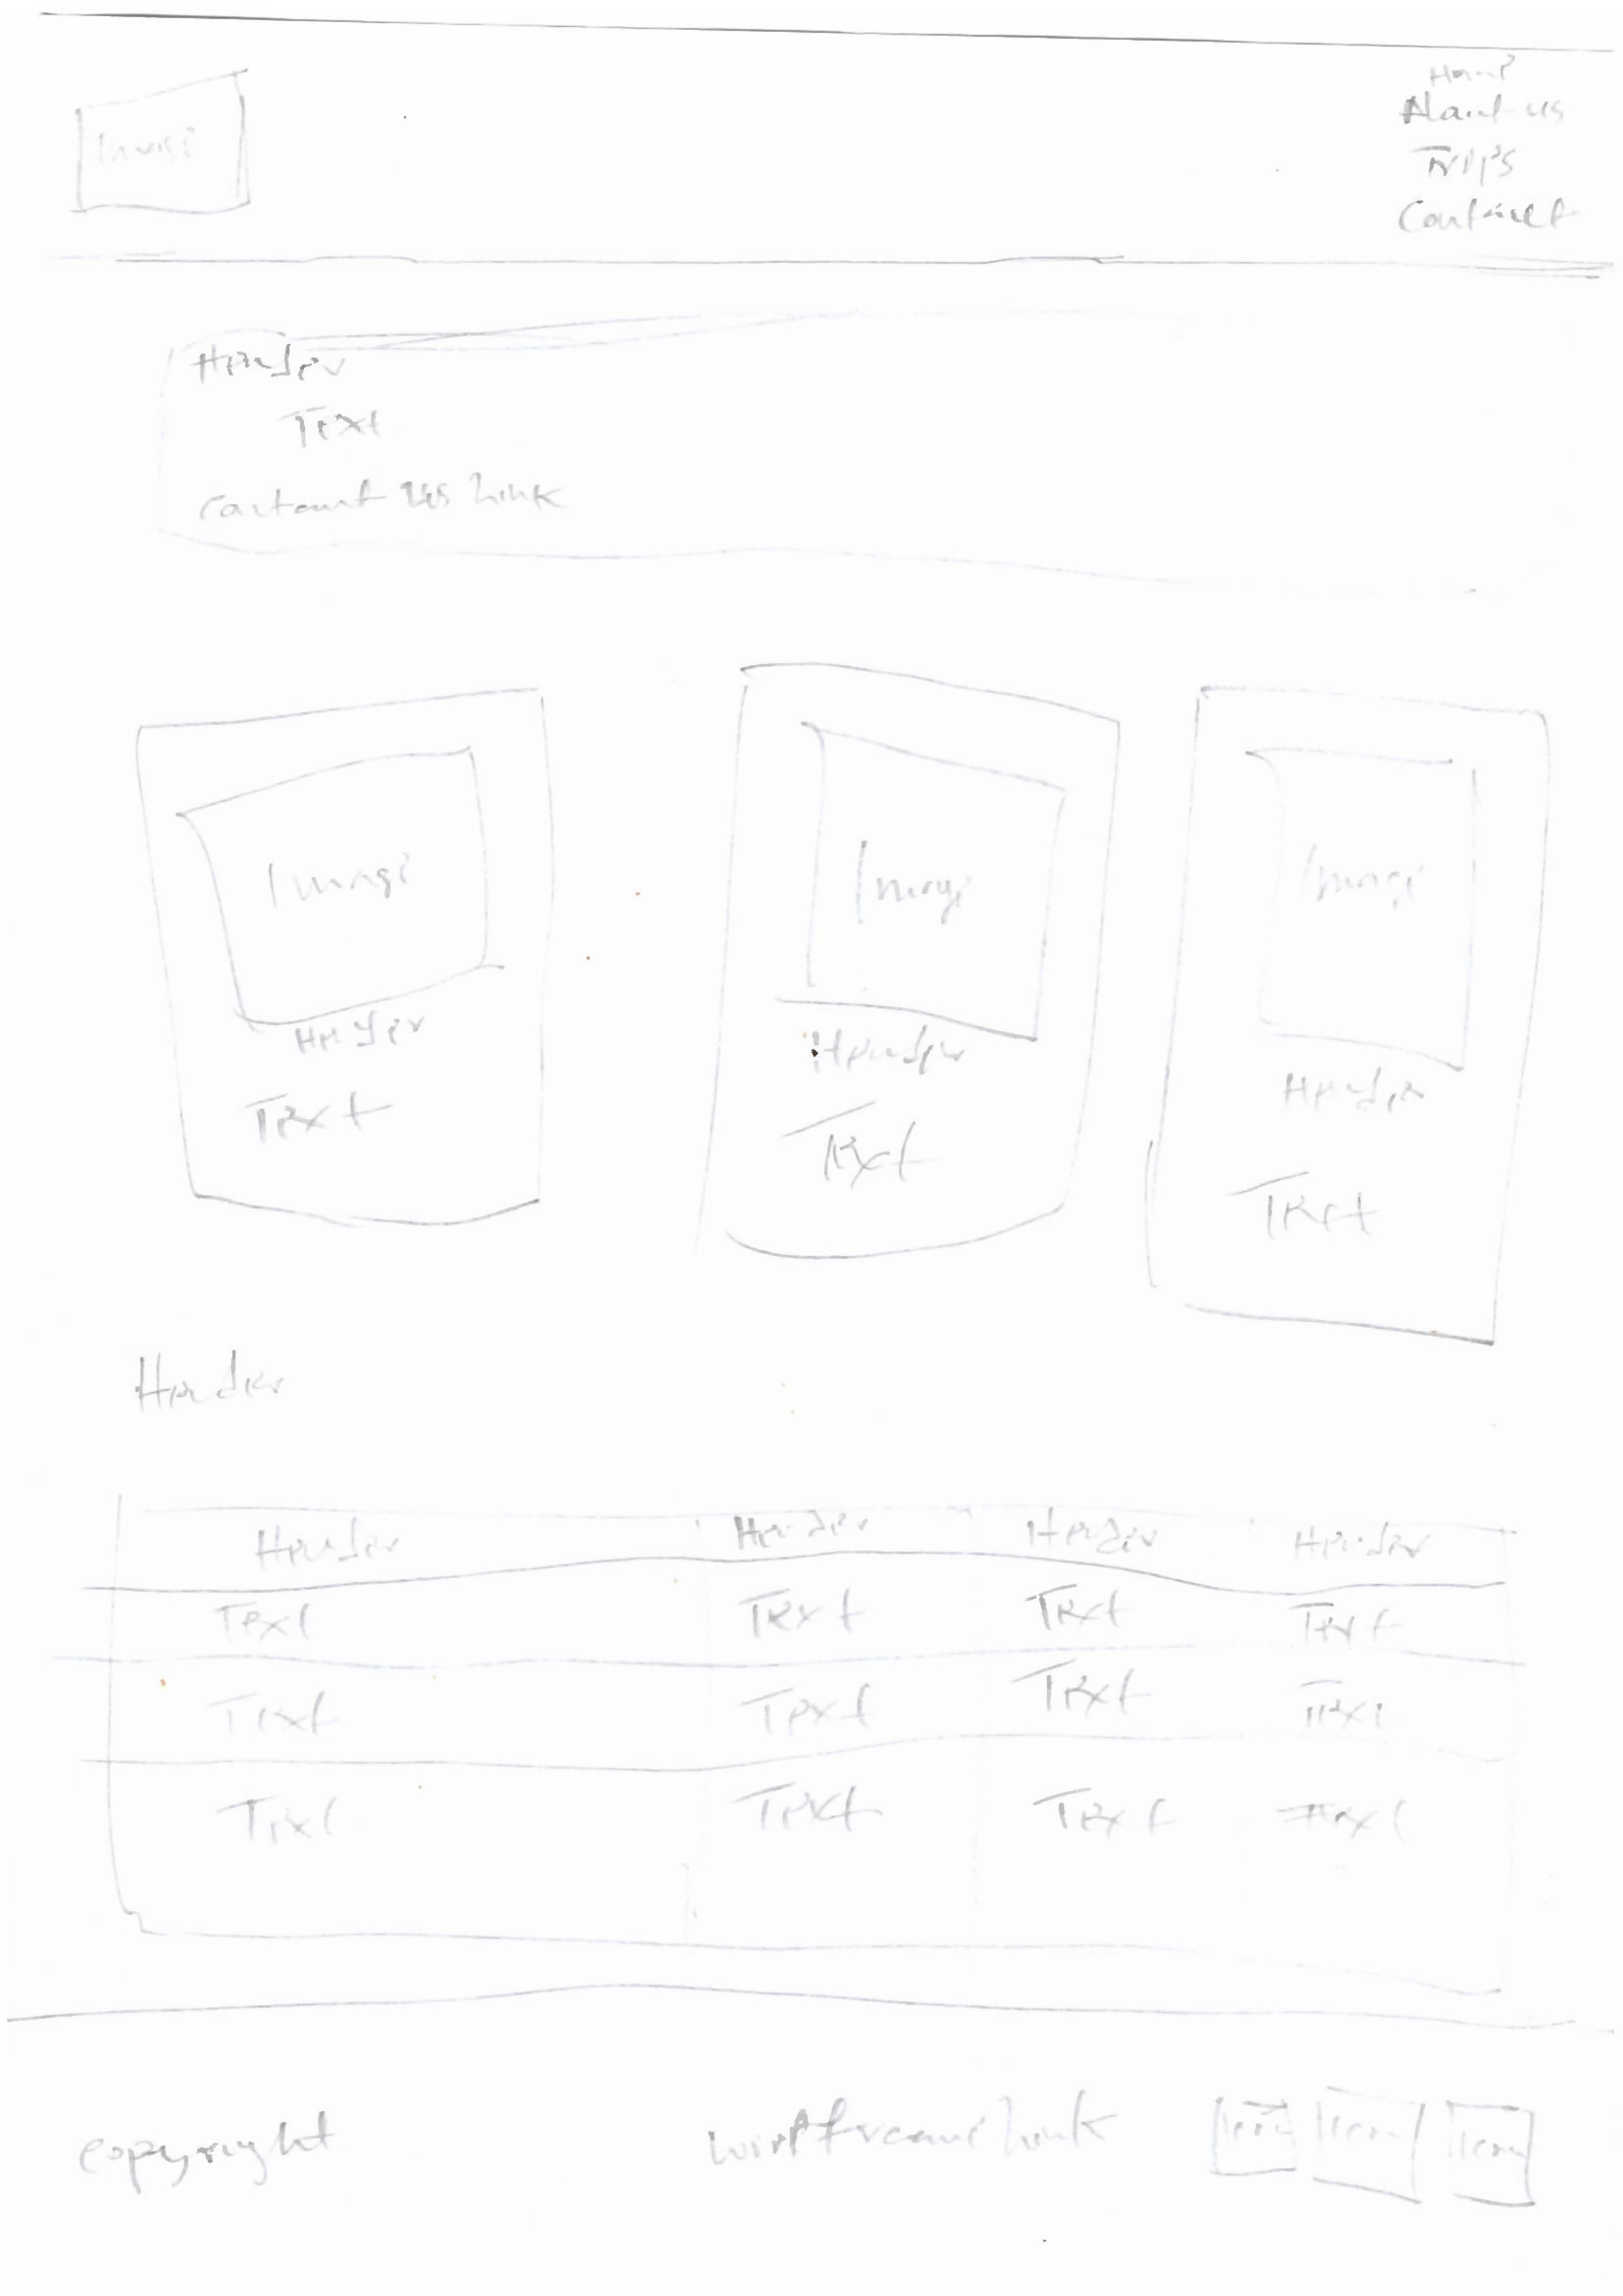 Image
Home
About us
Trips
Contact
Header
Text
Contact us link
Image
Image
Image
Header
Header
Header
Text
Text
Text
Header
Header Header Header Header
Text Text Text Text
Text Text Text Text
Text Text Text Text
copyright wireframe link Icon Icon Icon